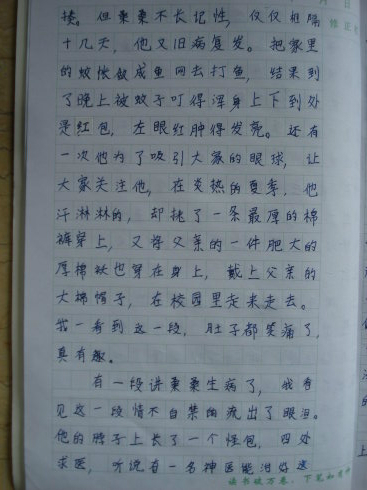 揍。但桑桑不长记性,仅仅相隔
十几天,他又旧病复发。把家里
的蚊帐做成鱼网去打鱼,结果到
了晚上被蚊子叮得浑身上下到处
是红包,左眼红肿得发亮。还有
一次他为了吸引大家的眼球,让
大家关注他,在炎热的夏季,他
汗淋淋的,却挑了一条最厚的棉
裤穿上,又将父亲的一件肥大的
厚棉袄也穿在身上,戴上父亲的
大棉帽子,在校园里走来走去。
我一看到这一段,肚子都笑痛了,
真有趣。
有一段讲桑桑生病了,我看
见这一段情不自禁的流出了眼泪。
他的脖子上长了一个怪包,四处
求医,听说有一名神医能治好这
读书破万卷,下笔如有神
修正